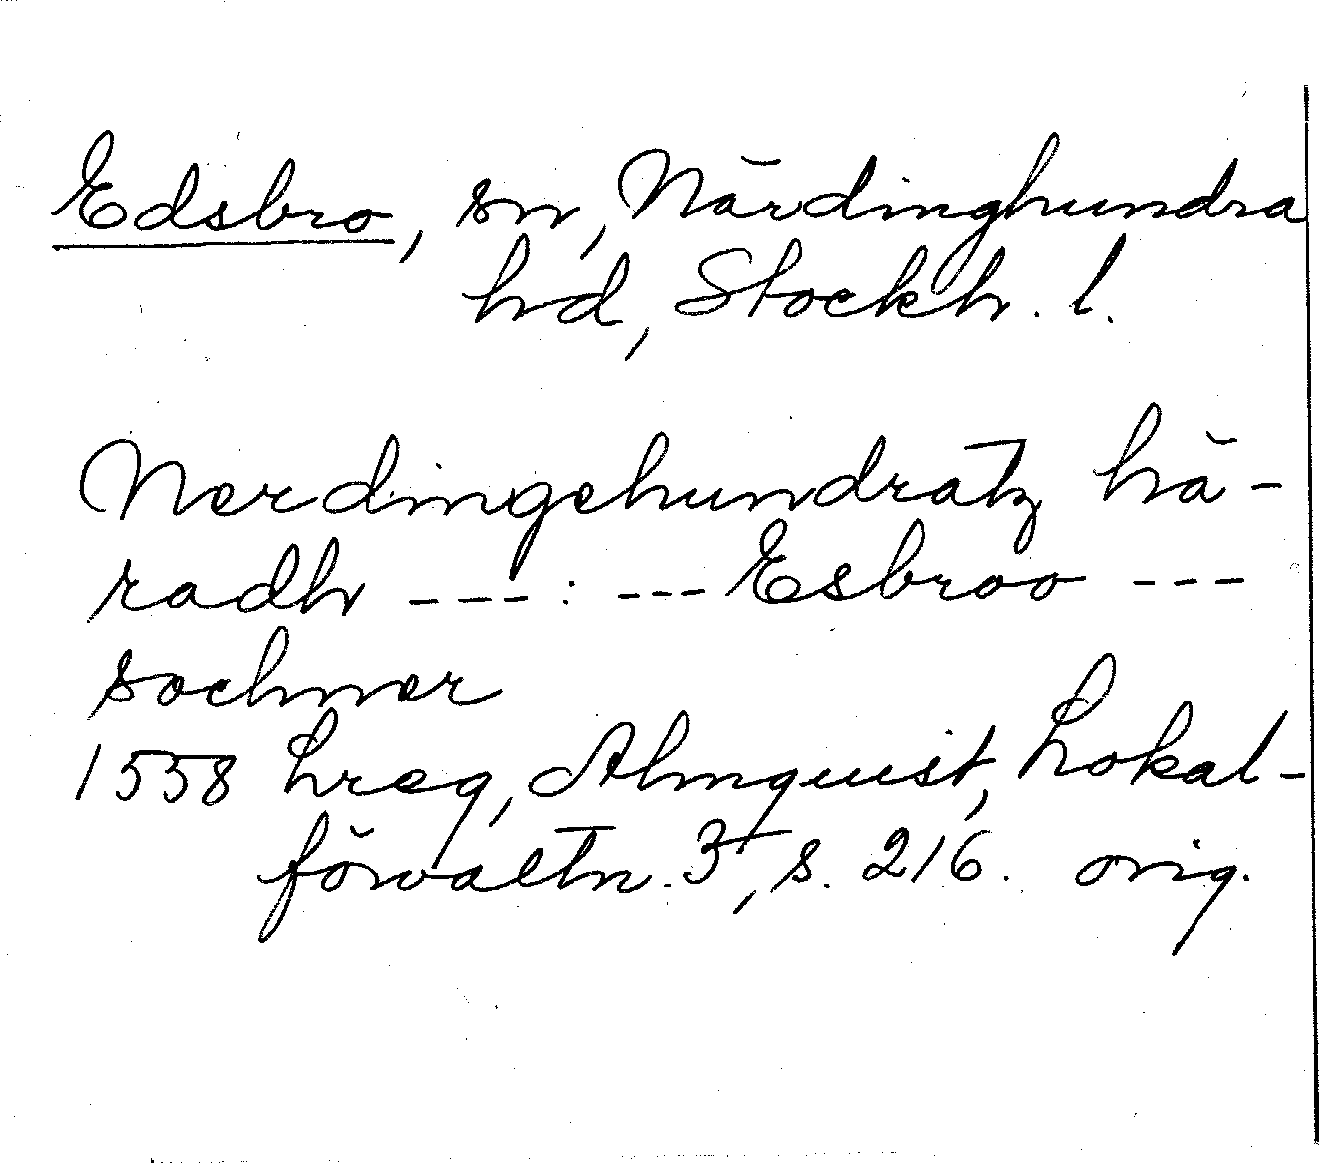 Edsbro, sn, Närdinghundra
hd, Stockh. l.
Nerdingehundratz hä-
radh ---:---Esbroo ---
sochner
1558 Lreg, Almquist, Lokal-
förvaltn. 3, s. 216. orig.